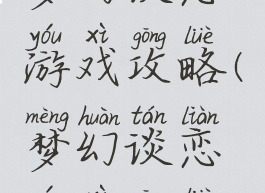 yóu xì gōng lüè
游戏攻略(
mèng huàn tán liàn
梦幻谈恋